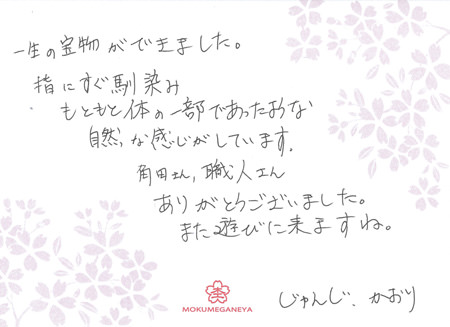 一生の宝物ができました。
指にすぐ馴染み
もともと体の一部であったような
自然な感じがしています。
角田さん、職人さん
ありがとうございました。
また遊びに来ますね。
MOKUMEGANEYA
じゅんじ、かおり